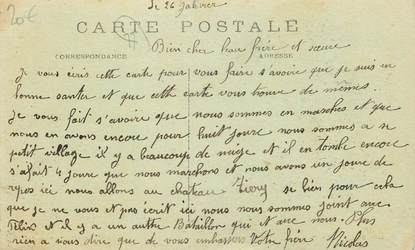 20€
le 26 Janvier
CARTE POSTALE
CORRESPONDANCE
ADRESSE
Bien cher beau frère et sœure
Je vous écris cette carte pour vous faire s'avoire que je suis en
bonne santer et que cette carte vous trouve de mêmes.
Je vous fait s'avoire que nous sommes en marches et que
nous en avons encore pour huit joure nous sommes a se
petit village il y a beaucoup de neige et il en tombe encore
s'a fait 4 joure que nous marchons et nous avons un joure de
repos ici nous allons au chateau se bien pour cela
que je ne vous et pas écrit ici nous nous sommes joint au
et il y a un authre Bataillon qui et avec nous. Plus
rien a vous dire que de vous embrasser Votre frère Nicolas